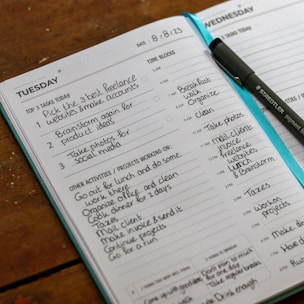 WEDNESDAY
DATE 8/8/23
TUESDAY
TIME BLOCKS
TOP 3 TASKS TODAY
1 Pick the 3 best freelance
websites & make accounts
2 Brainstorm again for
product ideas
3 Take photos for
social media
OTHER ACTIVITIES / PROJECTS WORKING ON:
Go out for lunch and do some
work there
Organize office and clean
Cook dinner for 2 days
Taxes
Mail client
Make invoice & send it
Continue projects
Go for a run
Breakfast
walk
Organize
Clean
Take photos
Mail client
invoice
freelance
websites
Lunch
& brainstorm
Taxes
Work on
projects
STAEDTLER
Don't plan to much
for one day and
take regular breaks
Drink enough